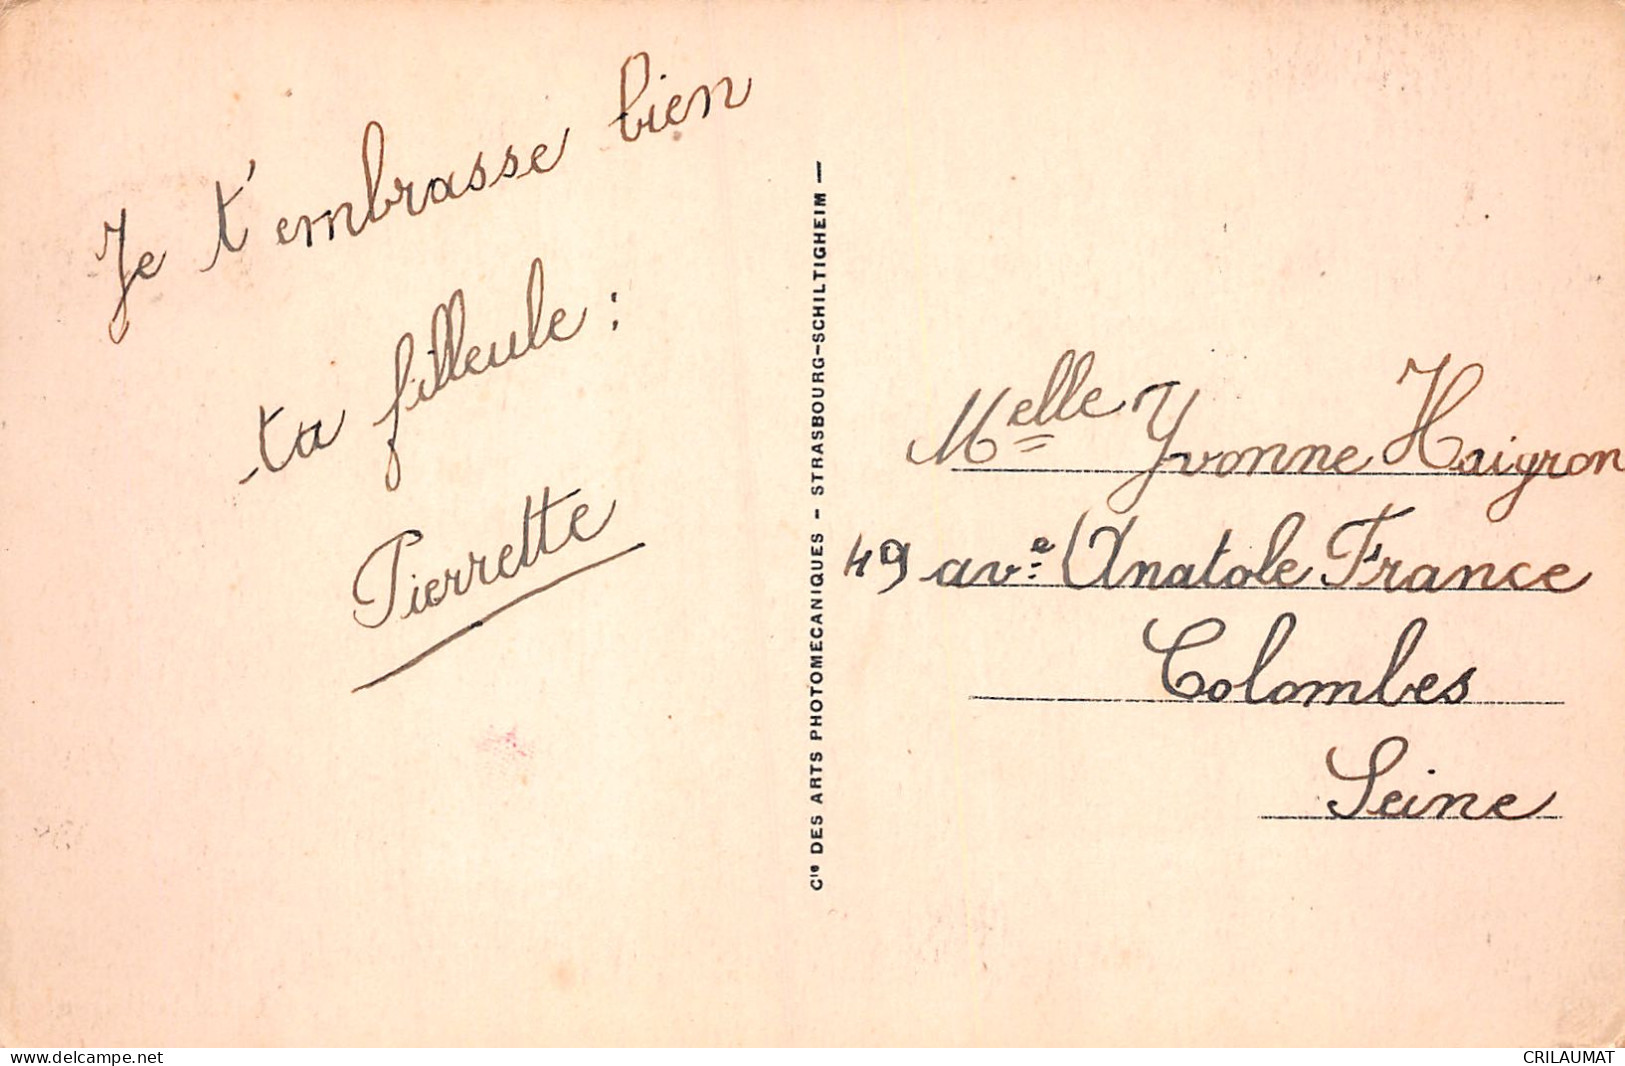 Je t'embrasse bien
ta filleule :
Pierrette
Cie DES ARTS PHOTOMECANIQUES - STRASBOURG-SCHILTIGHEIM —
Melle Yvonne Haigron
49 ave: Anatole France
Colombes
Seine
www.delcampe.net
CRILAUMAT